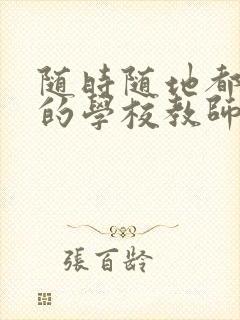 随時随地都
的學校教師
張百齡